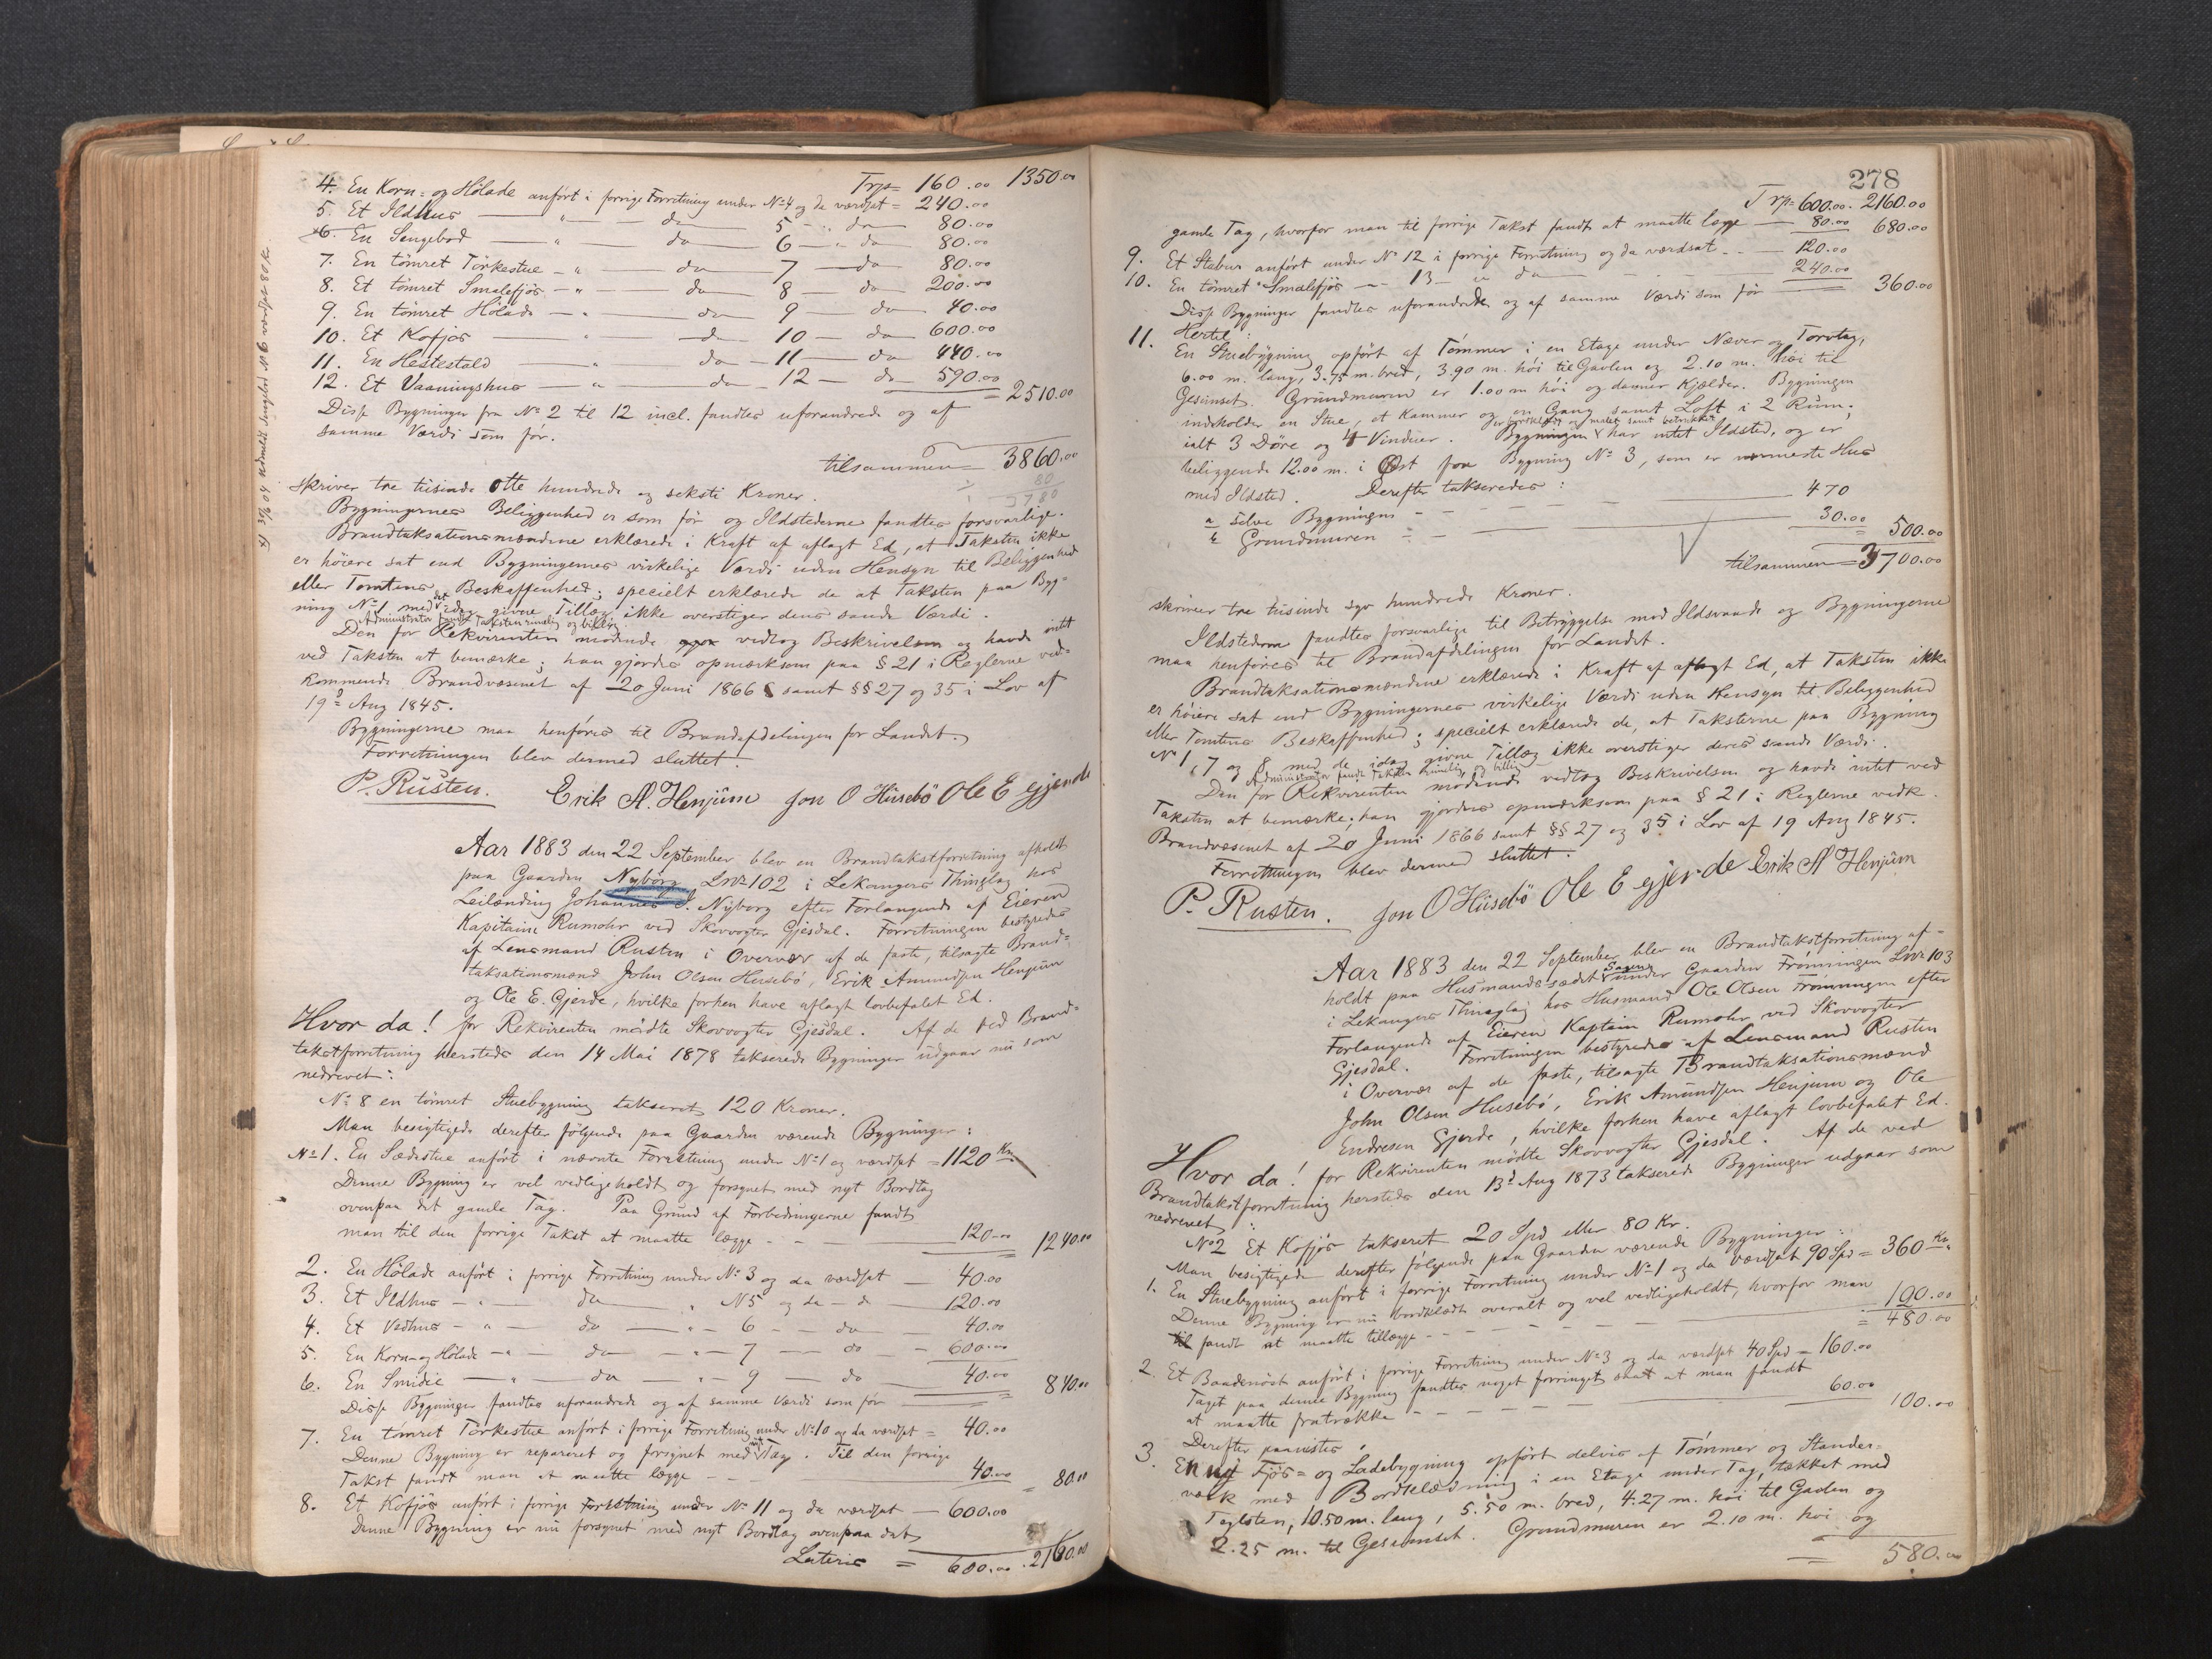 Trp = 160.00 1350.00
4. En Korn- og Hölade anfört i forrige Forretning under No 4 og da værdsat = 240.00
5. Et Ildhus — " — do — 5 — " do — 80.00
*6. En Sengebod — " — do — 6 — " do — 80.00
7. En tömret Törkestue — " — do — 7 — do — 80.00
8. Et tömret Smalefjös — " — do — 8 — do — 200.00
9. En tömret Hölade — " — do — 9 — do — 40.00
10. Et Kofjös — " — do — 10 — do — 600.00
11. En Hestestald — " — do — 11 — do — 440.00
12. Et Vaaningshus — " — do — 12 — do — 590.00
= 2510.00
Disse Bygninger fra No 2 til 12 incl. fandtes uforandrede og af
samme Værdi som för.
tilsammen = 3860.00
80
3780
skriver tre tusinde otte hundrede og seksti Kroner.
Bygningernes Beliggenhed er som för og Ildstederne fandtes forsvarlige.
Brandtaksationsmændene erklærede i Kraft af aflagt Ed, at Taksten ikke
er höiere sat end Bygningernes virkelige Værdi uden Hensyn til Beliggenhed
eller Tomtens Beskaffenhed; specielt erklærede de at Taksten paa Byg-
ning No 1 med det idag givne Tillæg ikke overstiger dens sande Værdi.
Administrator fandt Taksten rimelig og billig.
Den for Rekvirenten mödende vedtog Beskrivelsen og havde intet
ved Taksten at bemærke; han gjordes opmærksom paa § 21 i Reglerne ved-
kommende Brandvæsenet af 20 Juni 1866 samt §§ 27 og 35 i Lov af
19de Aug 1845.
Bygningerne maa henföres til Brandafdelingen for Landet.
Forretningen blev dermed sluttet.
P. Rusten. Erik A. Henjum Jon O Husebö Ole E Gjerde
Aar 1883 den 22 September blev en Brandtakstforretning afholdt
paa Gaarden Nyborg Lnr 102 i Lekangers Thinglag hos
Leilænding Johannes J. Nyborg efter Forlangende af Eieren
Kapitaine Rumohr ved Skovvogter Gjesdal. Forretningen bestyredes
af Lensmand Rusten i Overvær af de faste, tilsagte Brand-
taksationsmænd John Olsen Husebö, Erik Amundsen Henjum
og Ole E. Gjerde, hvilke forhen have aflagt lovbefalet Ed.
Hvor da! for Rekvirenten mödte Skovvogter Gjesdal. Af de ved Brand-
takstforretning hersteds den 14 Mai 1878 takserede Bygninger udgaar nu som
nedrevet:
No 8 en tömret Stuebygning takseret 120 Kroner.
Man besigtigede derefter fölgende paa Gaarden værende Bygninger:
No 1. En Sædestue anfört i nævnte Forretning under No 1 og værdsat = 1120 Kr.
Denne Bygning er vel vedligeholdt og forsynet med nyt Bordtag
ovenpaa det gamle Tag. Paa Grund af Forbedringerne fandt
man til den forrige Takst at maatte lægge - - 120.00 1240.00
2. En Hölade anfört i forrige Forretning under No 3 og da værdsat — 40.00
3. Et Ildhus - " - do — " N 5 og da - d — 120.00
4. Et Vedhus - " - do — " - 6 - do — 40.00
5. En Korn- og Hölade - " - do - " - 7 - do - 600.00
6. En Smidie — " — do — " - 9 — do — 40.00 840.00
Disse Bygninger fandtes uforandrede og af samme Værdi som för
7. En tömret Törkestue anfört i forrige Forretning under No 10 og da værdsat = 40.00
Denne Bygning er repareret og forsynet med nyt Tag. Til den forrige
Takst fandt man at maatte lægge - - 40.00 = 80.00
8. Et Kofjös anfört i forrige Forretning under No 11 og da værdsat — 600.00
Denne Bygning er nu forsynet med nyt Bordtag ovenpaa det
Lateris = 600.00. 2160.00
*) 3/6 04 udmeldt Sengebod No 6 værdsat 80 Kr.
278
Trp = 600.00. 2160.00
gamle Tag, hvorfor man til forrige Takst fandt at maatte lægge — 80.00 680.00
9. Et Stabur anfört under No 12 i forrige Forretning og da værdsat - - 120.00
10. En tömret Smalefjös — 13 - " do — 240.00 360.00
Disse Bygninger fandtes uforandrede og af samme Værdi som för
Hertil:
11. En Stuebygning opfört af Tömmer i en Etage under Næver og Torvtag,
6.00 m. lang, 3.75 m. bred, 3.90 m. höi til Gavlen og 2.10 m. höi til
Gesimset. Grundmuren er 1.00 m höi og danner Kjælder. Bygningen
indeholder en Stue, et Kammer og en Gang samt Loft i 2 Rum;
er bordklædt og malet samt betrukket
ialt 3 Döre og 4 Vinduer. Bygningen har intet Ildsted, og er
beliggende 12.00 m. i Öst fra Bygning No 3, som er nærmeste Hus
med Ildsted. Derefter takseredes:
a selve Bygningen - - - 470
b Grundmuren - - 30.00 500.00
tilsammen = 3700.00
skriver tre tusinde syv hundrede Kroner.
Ildstederne fandtes forsvarlige til Betryggelse mod Ildsvaade og Bygningerne
maa henföres til Brandafdelingen for Landet.
Brandtaksationsmændene erklærede i Kraft af aflagt Ed, at Taksten ikke
er höiere sat end Bygningernes virkelige Værdi uden Hensyn til Beliggenhed
eller Tomtens Beskaffenhed; specielt erklærede de, at Taksterne paa Bygning
No 1, 7 og 8 med de idag givne Tillæg ikke overstiger deres sande Værdi.
Administrator fandt Taksten rimelig og billig
Den for Rekvirenten mödende vedtog Beskrivelsen og havde intet ved
Taksten at bemærke; han gjordes opmærksom paa § 21 i Reglerne vedk.
Brandvæsenet af 20 Juni 1866 samt §§ 27 og 35 i Lov af 19 Aug 1845.
Forretningen blev dermed sluttet.
P. Rusten. Jon O Husebö Ole E Gjerde Erik A Henjum
Aar 1883 den 22 September blev en Brandtakstforretning af-
holdt paa Husmandssædet under Gaarden Frönningen Lnr 103
i Lekangers Thinglag hos Husmand Ole Olsen Frönningen efter
Forlangende af Eieren Kaptain Rumohr ved Skovvogter
Gjesdal. Forretningen bestyredes af Lensmand Rusten
i Overvær af de faste, tilsagte Brandtaksationsmænd
John Olsen Husebö, Erik Amundsen Henjum og Ole
Endresen Gjerde, hvilke forhen have aflagt lovbefalet Ed.
Hvor da! for Rekvirenten mödte Skovvogter Gjesdal. Af de ved
Brandtakstforretning hersteds den 13de Aug 1873 takserede Bygninger udgaar som
nedrevet:
No 2 Et Kofjös takseret 20 Spd eller 80 Kr.
Man besigtigede derefter fölgende paa Gaarden værende Bygninger:
1. En Stuebygning anfört i forrige Forretning under No 1 og da værdsat 90 Spd = 360 Kr.
Denne Bygning er nu bordklædt overalt og vel vedligeholdt, hvorfor man
fandt at maatte tillægge - - - 100.00
= 480.00
2. Et Baadenöst anfört i forrige Forretning under No 3 og da værdsat 40 Spd = 160.00
Taget paa denne Bygning fandtes noget forringet saat at man fandt
at maatte fratrække - - - 60.00 100.00
Derefter paavistes,
3. En ny Fjös- og Ladebygning opfört delvis af Tömmer og Stander-
værk med Bordklædning i en Etage under Tag, tækket med
Teglsten, 10.50 m. lang, 5.50 m. bred, 4.27 m. höi til Gavlen og
2.25 m. til Gesimset. Grundmuren er 2.10 m. höi og
= 580.00